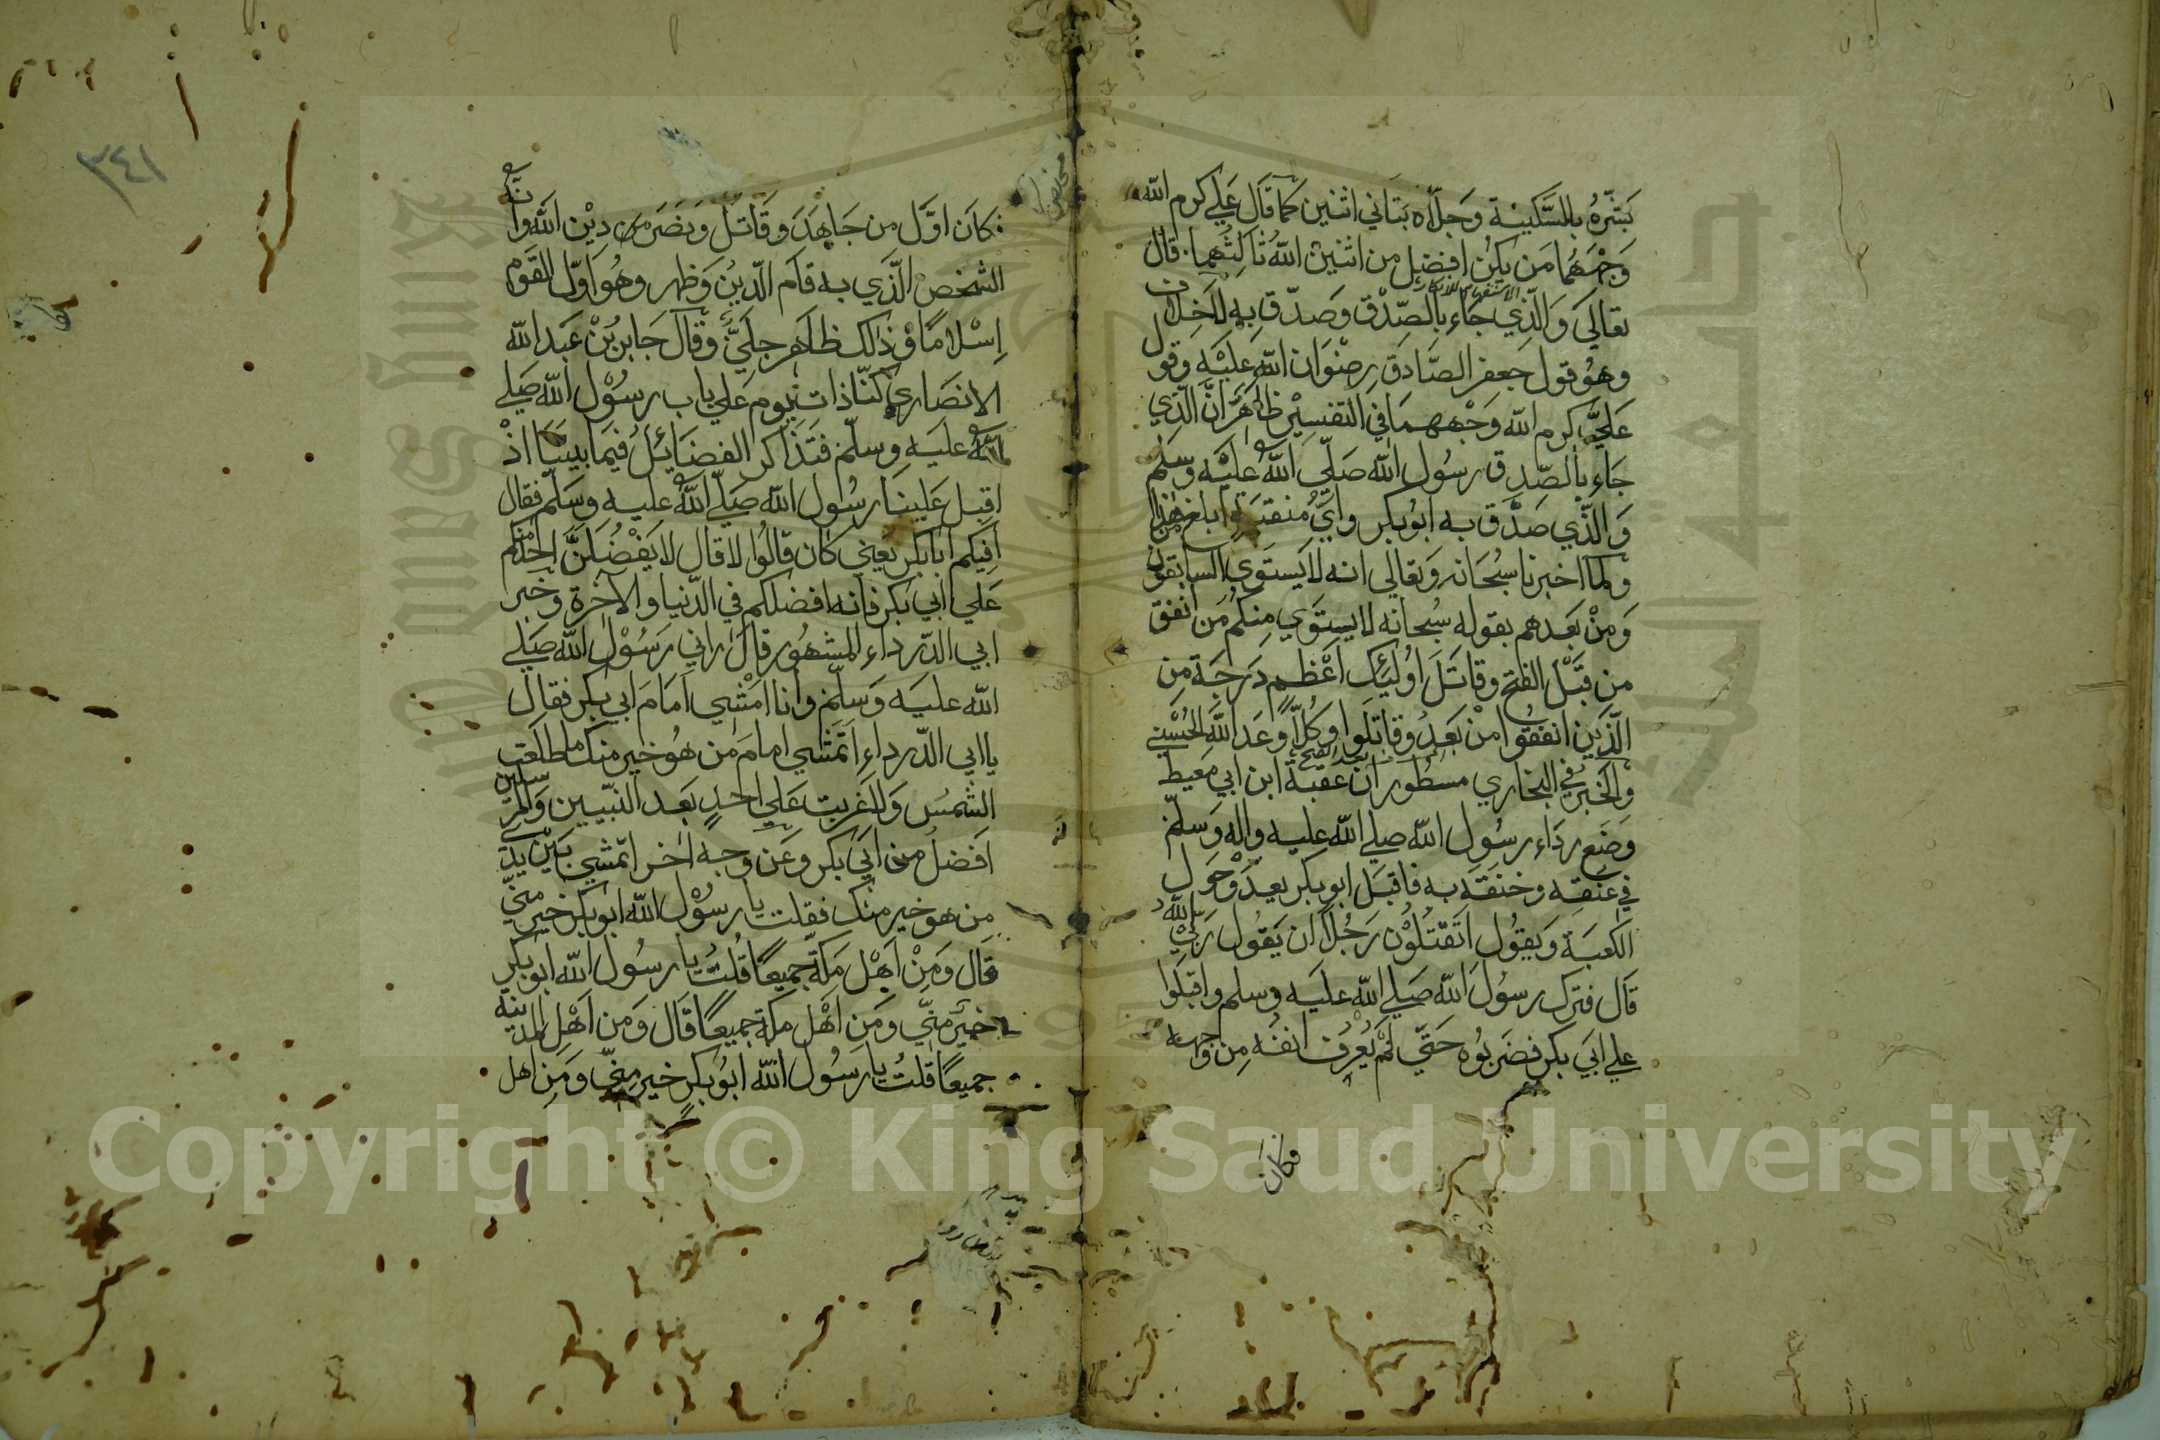 بَشَّرَهُ بالسَّكينة وَجلَّاه بَثاني اثنين كما قَال عَلي كرم الله
وَجْهَهُمَا مَن يكن افضل من اثنين اللهُ ثالِثُهما قال
الاستفهام للانكار
تعالى وَالّذي جَاء بالصّدْق وَصَدّق بِه لاخلاف
وهُو قول جَعفر الصَّادَق رضْوَان الله عَليْه وقول
عَلىّ كرم الله وَجْههمَا في التفسِيْر ظاهر انَّ الّذي
جَاء بالصّدق رسُول الله صَلّى اللهُ عليْه وسَلم
وَالّذي صَدَّق به ابوُبكر وايُّ مُنقبَة ابلغ من هذا
ولما اخبرنا سُبْحَانه وَتعالى انه لا يَستَوي السابقون
وَمِنْ بَعَدهم بقوله سُبحانه لا يستَوي مِنكُم مَن انفق
مِن قَبْل الفتح وقاتَلَ اوُلئِك اَعْظم دَرجَة مِن
الّذَين انفقُوا منْ بَعَدُ وقاتَلوا وَكُلّاً وَعَد اللهُ الحُسْنى
بعد الفتح
وَالخَبرُ في البخاري مسطُور ان عقبة ابن ابي معيط
وضَع ردَاء رسُول الله صلى الله عليه واله وَسلّم
في عنقه وخنقَه به فاقبَل ابو بكر يعدّوْ حَول
الكعبَة وَيقوُل اتَقْتُلُوْن رَجُلاً ان يَقوُل رَبّيَ اللهُ
قَال فترك رسوُلَ الله صَلى الله علَيه وسلم واقبَلوا
على ابَي بكر فضَربوُه حَتّى لمْ يُعْرَف انفُه مِن وَجهه
فكان
٣٤١
فكَان اوَّل من جَاهَدَ وقَاتلَ ونصَر من دِيْن الله وَانه
الشخص الّذي به قام الدّينُ وَظهر وهُو اوّل القَوْم
اِسْلامًا وَذلك ظاهر جلَىٌّ وقَال جَابر بْن عَبَد الله
الانصَاري كنّا ذات يوم عَلى باب رسُوْل الله صَلى
الله علَيه وسلّم فتَذاكر الفضَائِل فيما بيننَا اذْ
اقبل عَلينا رسُول الله صَلّى اللهُ عليه وسَلّم فقال
افيكم ابا بكر يَعني كان قالُوا لا قال لا يَفْضُلَنَّ احَدُ منكم
عَلى ابي بَكر فانه افضلكم في الدّنيا والآخرة وخبر
ابي الدّرداء المشهُور قال رَاني رَسُوْل الله صَلى
الله علَيه وَسلّم وانا امْشي اَمَامَ ابي بكر فقال
يا ابي الدّرداء اَتمَشي امامَ من هُو خير منك ما طلَعَت
الشمسُ وَلا غربت عَلى احَدٍ بَعَد النّبيين وَالمرسَلين
اَفضلُ من ابَي بَكر وعَن وَجه اخر اتمْشي بَيْن يدَي
مِن هو خير منك فقلت يا رسُوْل الله ابو بَكر خير منّي
قَال وَمِنْ اَهْل مَكّة جميعًا قُلتُ يا رسُول الله ابو بكر
خيرٌ منّي ومَن اَهْل مكة جميعًا قَال وَمن اَهْل المدينة
جميعًا قلتُ يا رَسُول الله ابوُ بكرٍ خير مِنّي وَمَن اهل
Copyright © King Saud University